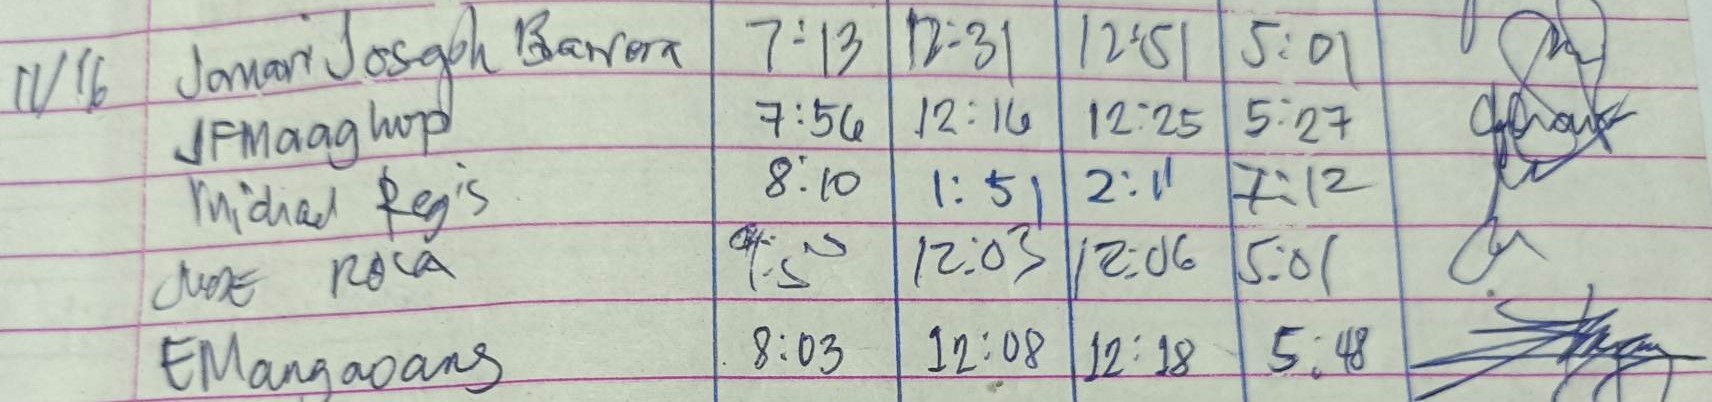 11/16 Jomari Joseph Barrera 7:13 12:31 12:51 5:01
JFMaaghop 7:56 12:16 12:25 5:27
Michael Regis 8:10 1:51 2:11 7:12
ROCA 12:03 12:06 5:01
EMangaoang 8:03 12:08 12:18 5:48